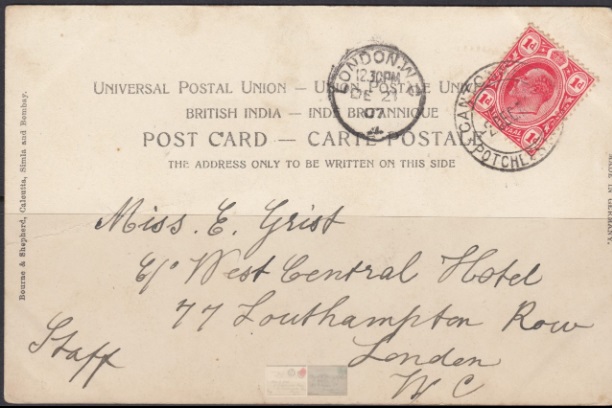 LONDON.W.C
12.30PM
DE 21
07
UNIVERSAL POSTAL UNION — UNION POSTALE UNI
BRITISH INDIA — INDE BRITANNIQUE
POST CARD — CARTE POSTAL
THE ADDRESS ONLY TO BE WRITTEN ON THIS SIDE
1d
1d
1d
POTCHE
Bourne & Shepherd, Calcutta, Simla and Bombay.
MADE IN GERMANY.
Miss. E. Grist
C/o West Central Hotel
77 Southampton Row
London
W C
Staff